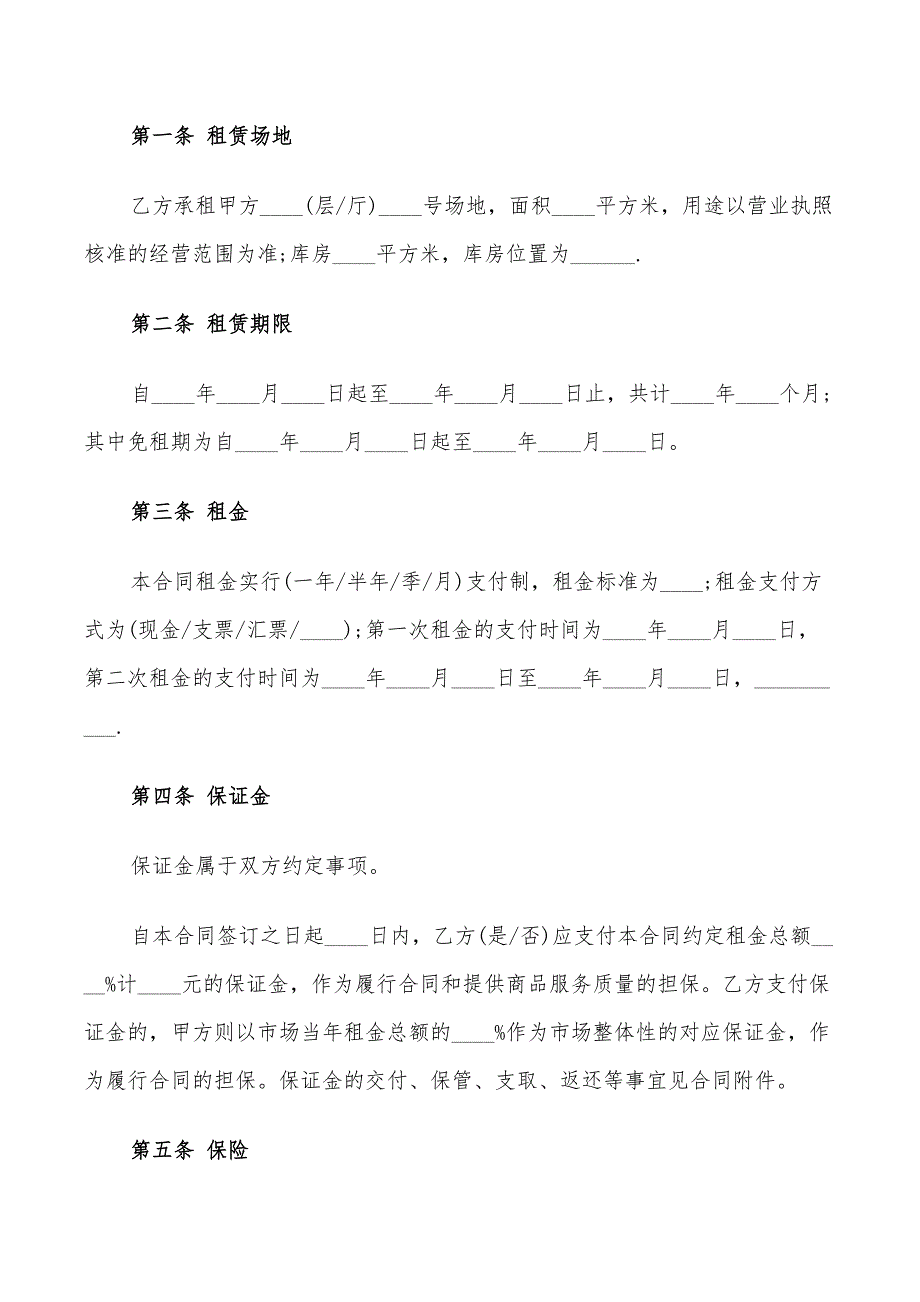 第一条 租赁场地
乙方承租甲方____(层/厅)____号场地，面积____平方米，用途以营业执照
核准的经营范围为准;库房____平方米，库房位置为______.
第二条 租赁期限
自____年____月____日起至____年____月____日止，共计____年____个月;
其中免租期为自____年____月____日起至____年____月____日。
第三条 租金
本合同租金实行(一年/半年/季/月)支付制，租金标准为____;租金支付方
式为(现金/支票/汇票/____);第一次租金的支付时间为____年____月____日，
第二次租金的支付时间为____年____月____日至____年____月____日，_______
___.
第四条 保证金
保证金属于双方约定事项。
自本合同签订之日起____日内，乙方(是/否)应支付本合同约定租金总额__
__%计____元的保证金，作为履行合同和提供商品服务质量的担保。乙方支付保
证金的，甲方则以市场当年租金总额的____%作为市场整体性的对应保证金，作
为履行合同的担保。保证金的交付、保管、支取、返还等事宜见合同附件。
第五条 保险